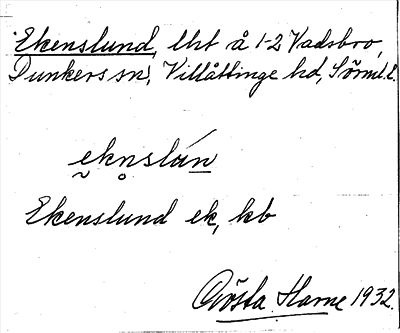 Ekenslund, lht å 1-2 Vadsbro,
Dunkers sn, Villåttinge hd, Sörml. l.
eknslán
Ekenslund ek, kb
Gösta Harne 1932.